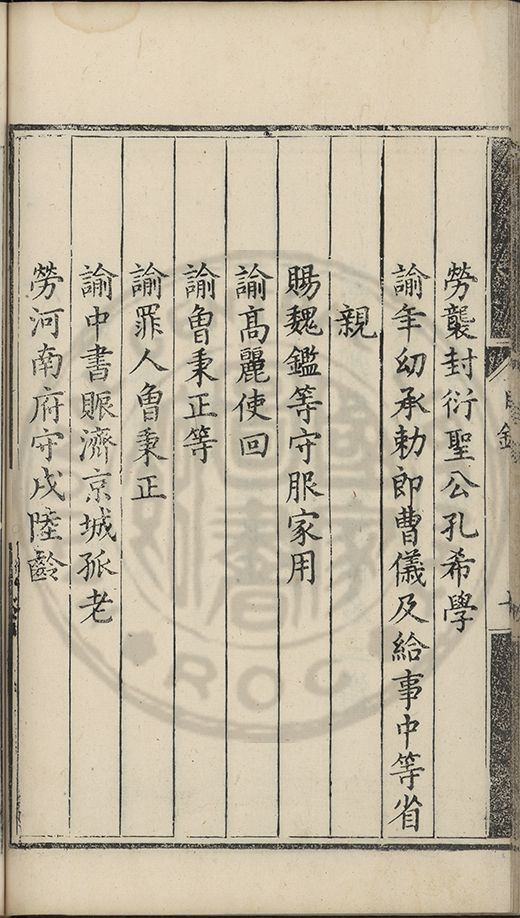 勞襲封衍聖公孔希學
諭年幼承勅郎曹儀及給事中等省
親
賜魏鑑等守服家用
諭高麗使回
諭魯秉正等
諭罪人魯秉正
諭中書賑濟京城孤老
勞河南府守戍陸齡
ROC